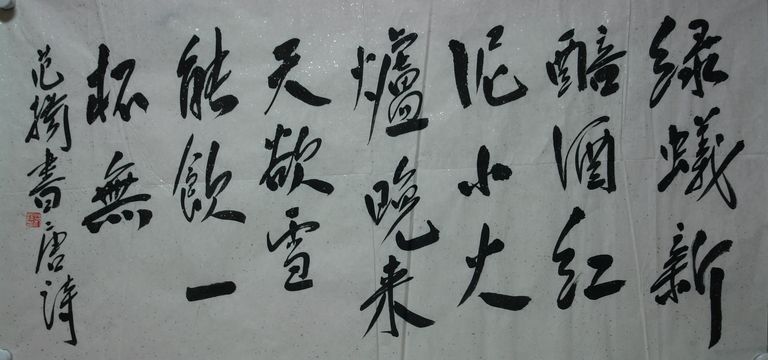 绿蟻新
醅酒红
泥小火
爐晚来
天欲雪
能飲一
杯無
范 書唐诗